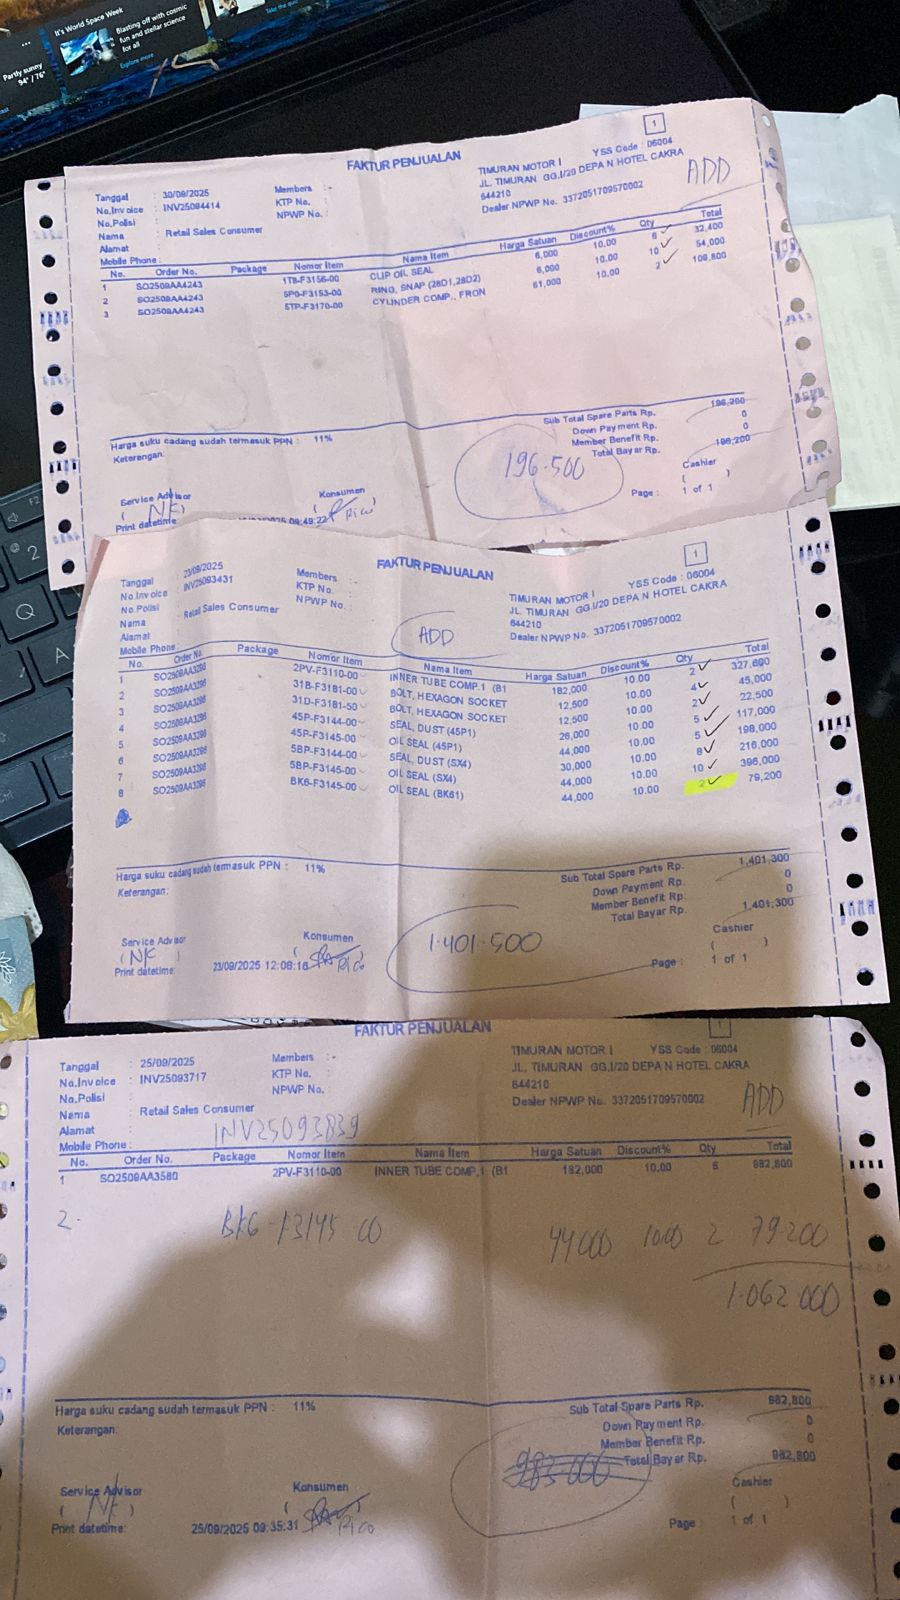 It's World Space Week
Blasting off with cosmic
fun and stellar science
for all
Explore more
Take the quiz
Partly sunny
94° / 76°
FAKTUR PENJUALAN
1
TIMURAN MOTOR I YSS Code : 06004
JL. TIMURAN GG.I/20 DEPA N HOTEL CAKRA
644210
Dealer NPWP No. 3372051709570002
ADD
Tanggal : 30/09/2025 Members : -
No.Invoice : INV25094414 KTP No. :
No.Polisi : NPWP No. :
Nama : Retail Sales Consumer
Alamat :
Mobile Phone :
No. Order No. Package Nomor Item Nama Item Harga Satuan Discount% Qty Total
1 SO2509AA4243 1TB-F3156-00 CLIP OIL SEAL 6,000 10.00 6 32,400
2 SO2509AA4243 5P0-F3153-00 RING, SNAP (28D1,28D2) 6,000 10.00 10 54,000
3 SO2509AA4243 5TP-F3170-00 CYLINDER COMP., FRON 61,000 10.00 2 109,800
Harga suku cadang sudah termasuk PPN : 11%
Keterangan:
Sub Total Spare Parts Rp. 196,200
Down Payment Rp. 0
Member Benefit Rp. 0
Total Bayar Rp. 196,200
196.500
Service Advisor Konsumen Cashier
(NK) ( Rico ( )
Print datetime: 09:49:22 Page : 1 of 1
FAKTUR PENJUALAN
1
TIMURAN MOTOR I YSS Code : 06004
JL. TIMURAN GG.I/20 DEPA N HOTEL CAKRA
644210
Dealer NPWP No. 3372051709570002
ADD
Tanggal : 23/09/2025 Members : -
No.Invoice : INV25093431 KTP No. :
No.Polisi : NPWP No. :
Nama : Retail Sales Consumer
Alamat :
Mobile Phone :
No. Order No. Package Nomor Item Nama Item Harga Satuan Discount% Qty Total
1 SO2509AA3296 2PV-F3110-00 INNER TUBE COMP.1 (B1 182,000 10.00 2 327,600
2 SO2509AA3296 31B-F3181-00 BOLT, HEXAGON SOCKET 12,500 10.00 4 45,000
3 SO2509AA3296 31D-F3181-50 BOLT, HEXAGON SOCKET 12,500 10.00 2 22,500
4 SO2509AA3296 45P-F3144-00 SEAL, DUST (45P1) 26,000 10.00 5 117,000
5 SO2509AA3296 45P-F3145-00 OIL SEAL (45P1) 44,000 10.00 5 198,000
6 SO2509AA3296 5BP-F3144-00 SEAL, DUST (SX4) 30,000 10.00 8 216,000
7 SO2509AA3296 5BP-F3145-00 OIL SEAL (SX4) 44,000 10.00 10 396,000
8 SO2509AA3296 BK6-F3145-00 OIL SEAL (BK61) 44,000 10.00 2 79,200
Harga suku cadang sudah termasuk PPN : 11%
Keterangan:
Sub Total Spare Parts Rp. 1,401,300
Down Payment Rp. 0
Member Benefit Rp. 0
Total Bayar Rp. 1,401,300
1.401.500
Service Advisor Konsumen Cashier
(NK) ( Rico ( )
Print datetime: 23/09/2025 12:08:16 Page : 1 of 1
FAKTUR PENJUALAN
1
TIMURAN MOTOR I YSS Code : 06004
JL. TIMURAN GG.I/20 DEPA N HOTEL CAKRA
644210
Dealer NPWP No. 3372051709570002
ADD
Tanggal : 25/09/2025 Members : -
No.Invoice : INV25093717 KTP No. :
No.Polisi : NPWP No. :
Nama : Retail Sales Consumer
Alamat :
INV25093839
Mobile Phone :
No. Order No. Package Nomor Item Nama Item Harga Satuan Discount% Qty Total
1 SO2509AA3580 2PV-F3110-00 INNER TUBE COMP.1 (B1 182,000 10.00 6 982,800
2. BK6-F3145-00 44000 10.00 2 79.200
1.062.000
Harga suku cadang sudah termasuk PPN : 11%
Keterangan:
Sub Total Spare Parts Rp. 982,800
Down Payment Rp. 0
Member Benefit Rp. 0
Total Bayar Rp. 982,800
983.000
Service Advisor Konsumen Cashier
(NK) ( Rico ( )
Print datetime: 25/09/2025 09:35:31 Page : 1 of 1